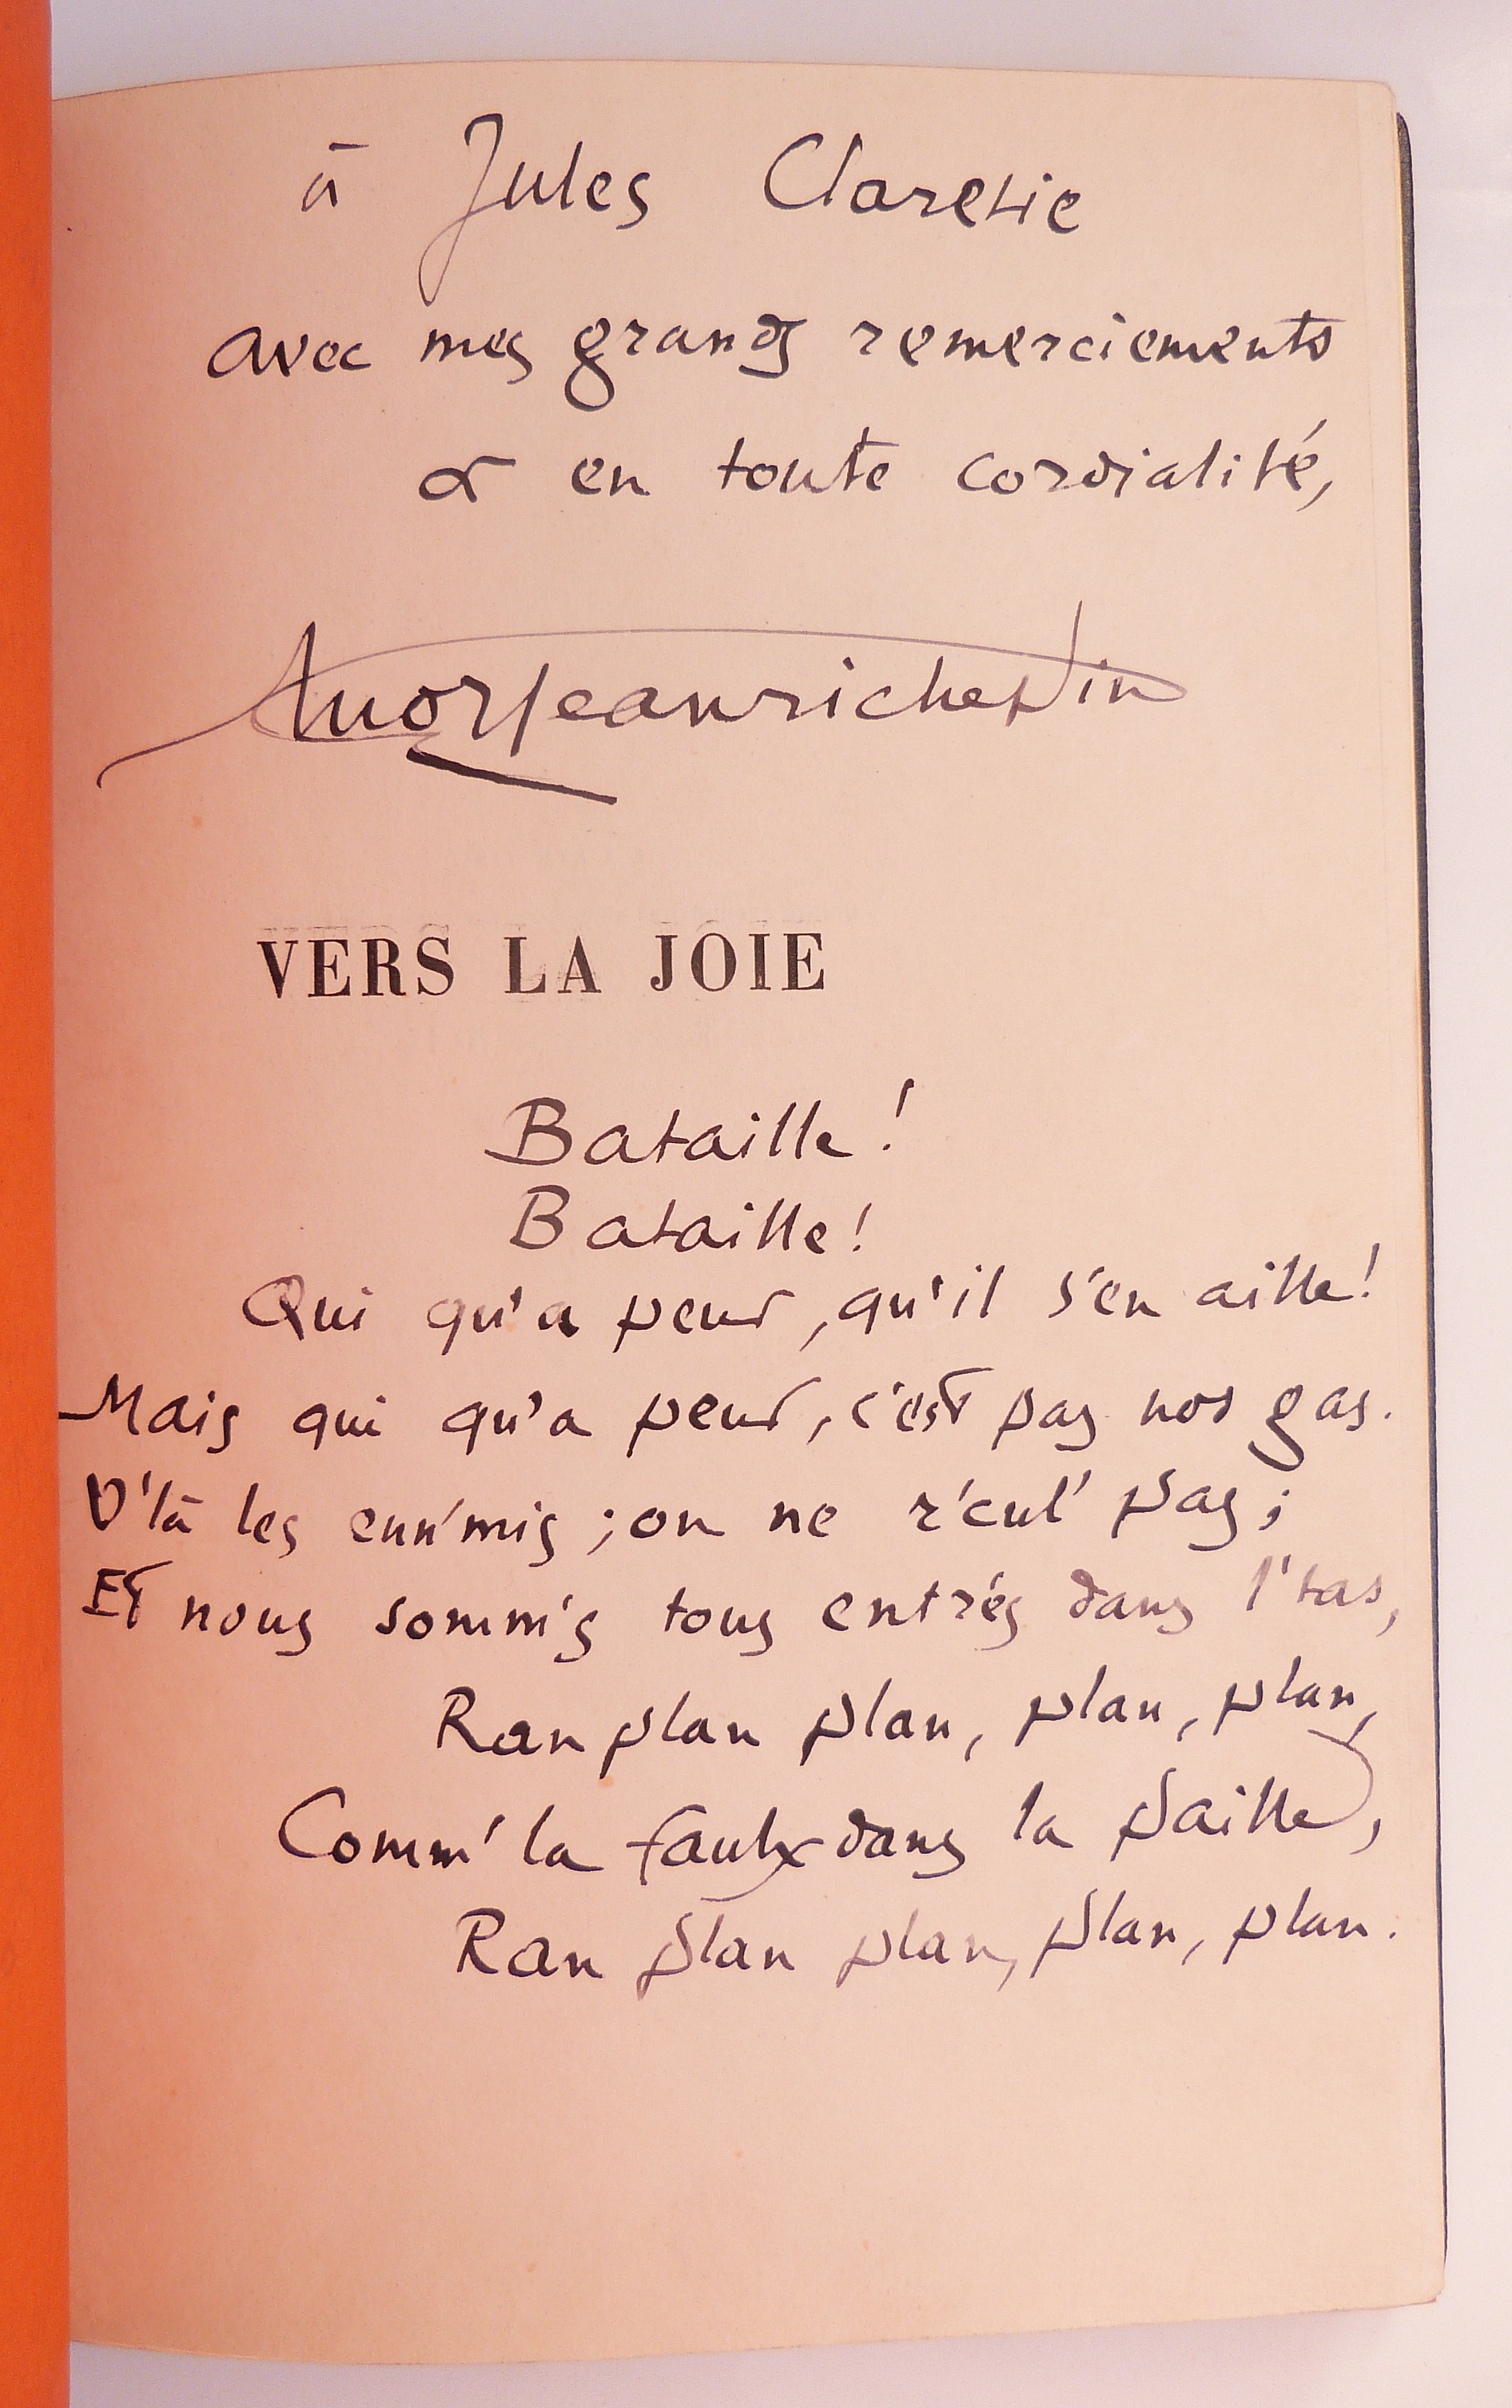 à Jules Claretie
avec mes grands remerciements
& en toute cordialité,
Jeanrichepin
VERS LA JOIE
Bataille !
Bataille !
Qui qu'a peur, qu'il s'en aille !
Mais qui qu'a peur, c'est pas nos gas.
V'là les enn'mis ; on ne r'cul' pas ;
Et nous somm's tous entrés dans l'tas,
Ran plan plan, plan, plan,
Comm' la faulx dans la paille,
Ran plan plan, plan, plan.